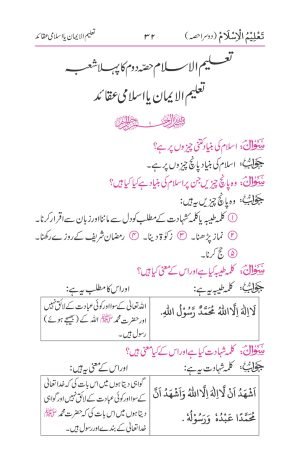 تعلیم الاسلام (دوسرا حصہ) ۳۲ تعلیم الایمان یا اسلامی عقائد
تعلیم الاسلام حصّہ دوم کا پہلا شعبہ
تعلیم الایمان یا اسلامی عقائد
سوال: اسلام کی بنیاد کتنی چیزوں پر ہے؟
جواب: اسلام کی بنیاد پانچ چیزوں پر ہے۔
سوال: وہ پانچ چیزیں جن پر اسلام کی بنیاد ہے کیا کیا ہیں؟
جواب: وہ پانچ چیزیں یہ ہیں:
① کلمہ طیبہ یا کلمہ شہادت کے مطلب کو دل سے ماننا اور زبان سے اقرار کرنا۔
② نماز پڑھنا۔ ③ زکوٰۃ دینا۔ ④ رمضان شریف کے روزے رکھنا۔
⑤ حج کرنا۔
سوال: کلمہ طیبہ کیا ہے اور اس کے معنی کیا ہیں؟
جواب: کلمہ طیبہ یہ ہے: اور اس کا مطلب یہ ہے:
لَا اِلٰهَ اِلَّا اللهُ مُحَمَّدٌ رَّسُوْلُ اللهِ.
اللہ تعالیٰ کے سوا اور کوئی عبادت کے لائق نہیں
اور حضرت محمد ﷺ اللہ کے (بھیجے ہوئے)
رسول ہیں۔
سوال: کلمہ شہادت کیا ہے اور اس کے کیا معنی ہیں؟
جواب: کلمہ شہادت یہ ہے: اور اس کے معنی یہ ہیں:
اَشْهَدُ اَنْ لَّا اِلٰهَ اِلَّا اللهُ وَاَشْهَدُ اَنَّ
مُحَمَّدًا عَبْدُهٗ وَرَسُوْلُهٗ.
گواہی دیتا ہوں میں اس بات کی کہ خدا تعالیٰ
کے سوا اور کوئی عبادت کے لائق نہیں اور گواہی
دیتا ہوں میں اس بات کی کہ حضرت محمد ﷺ
خدا تعالیٰ کے بندے اور رسول ہیں۔